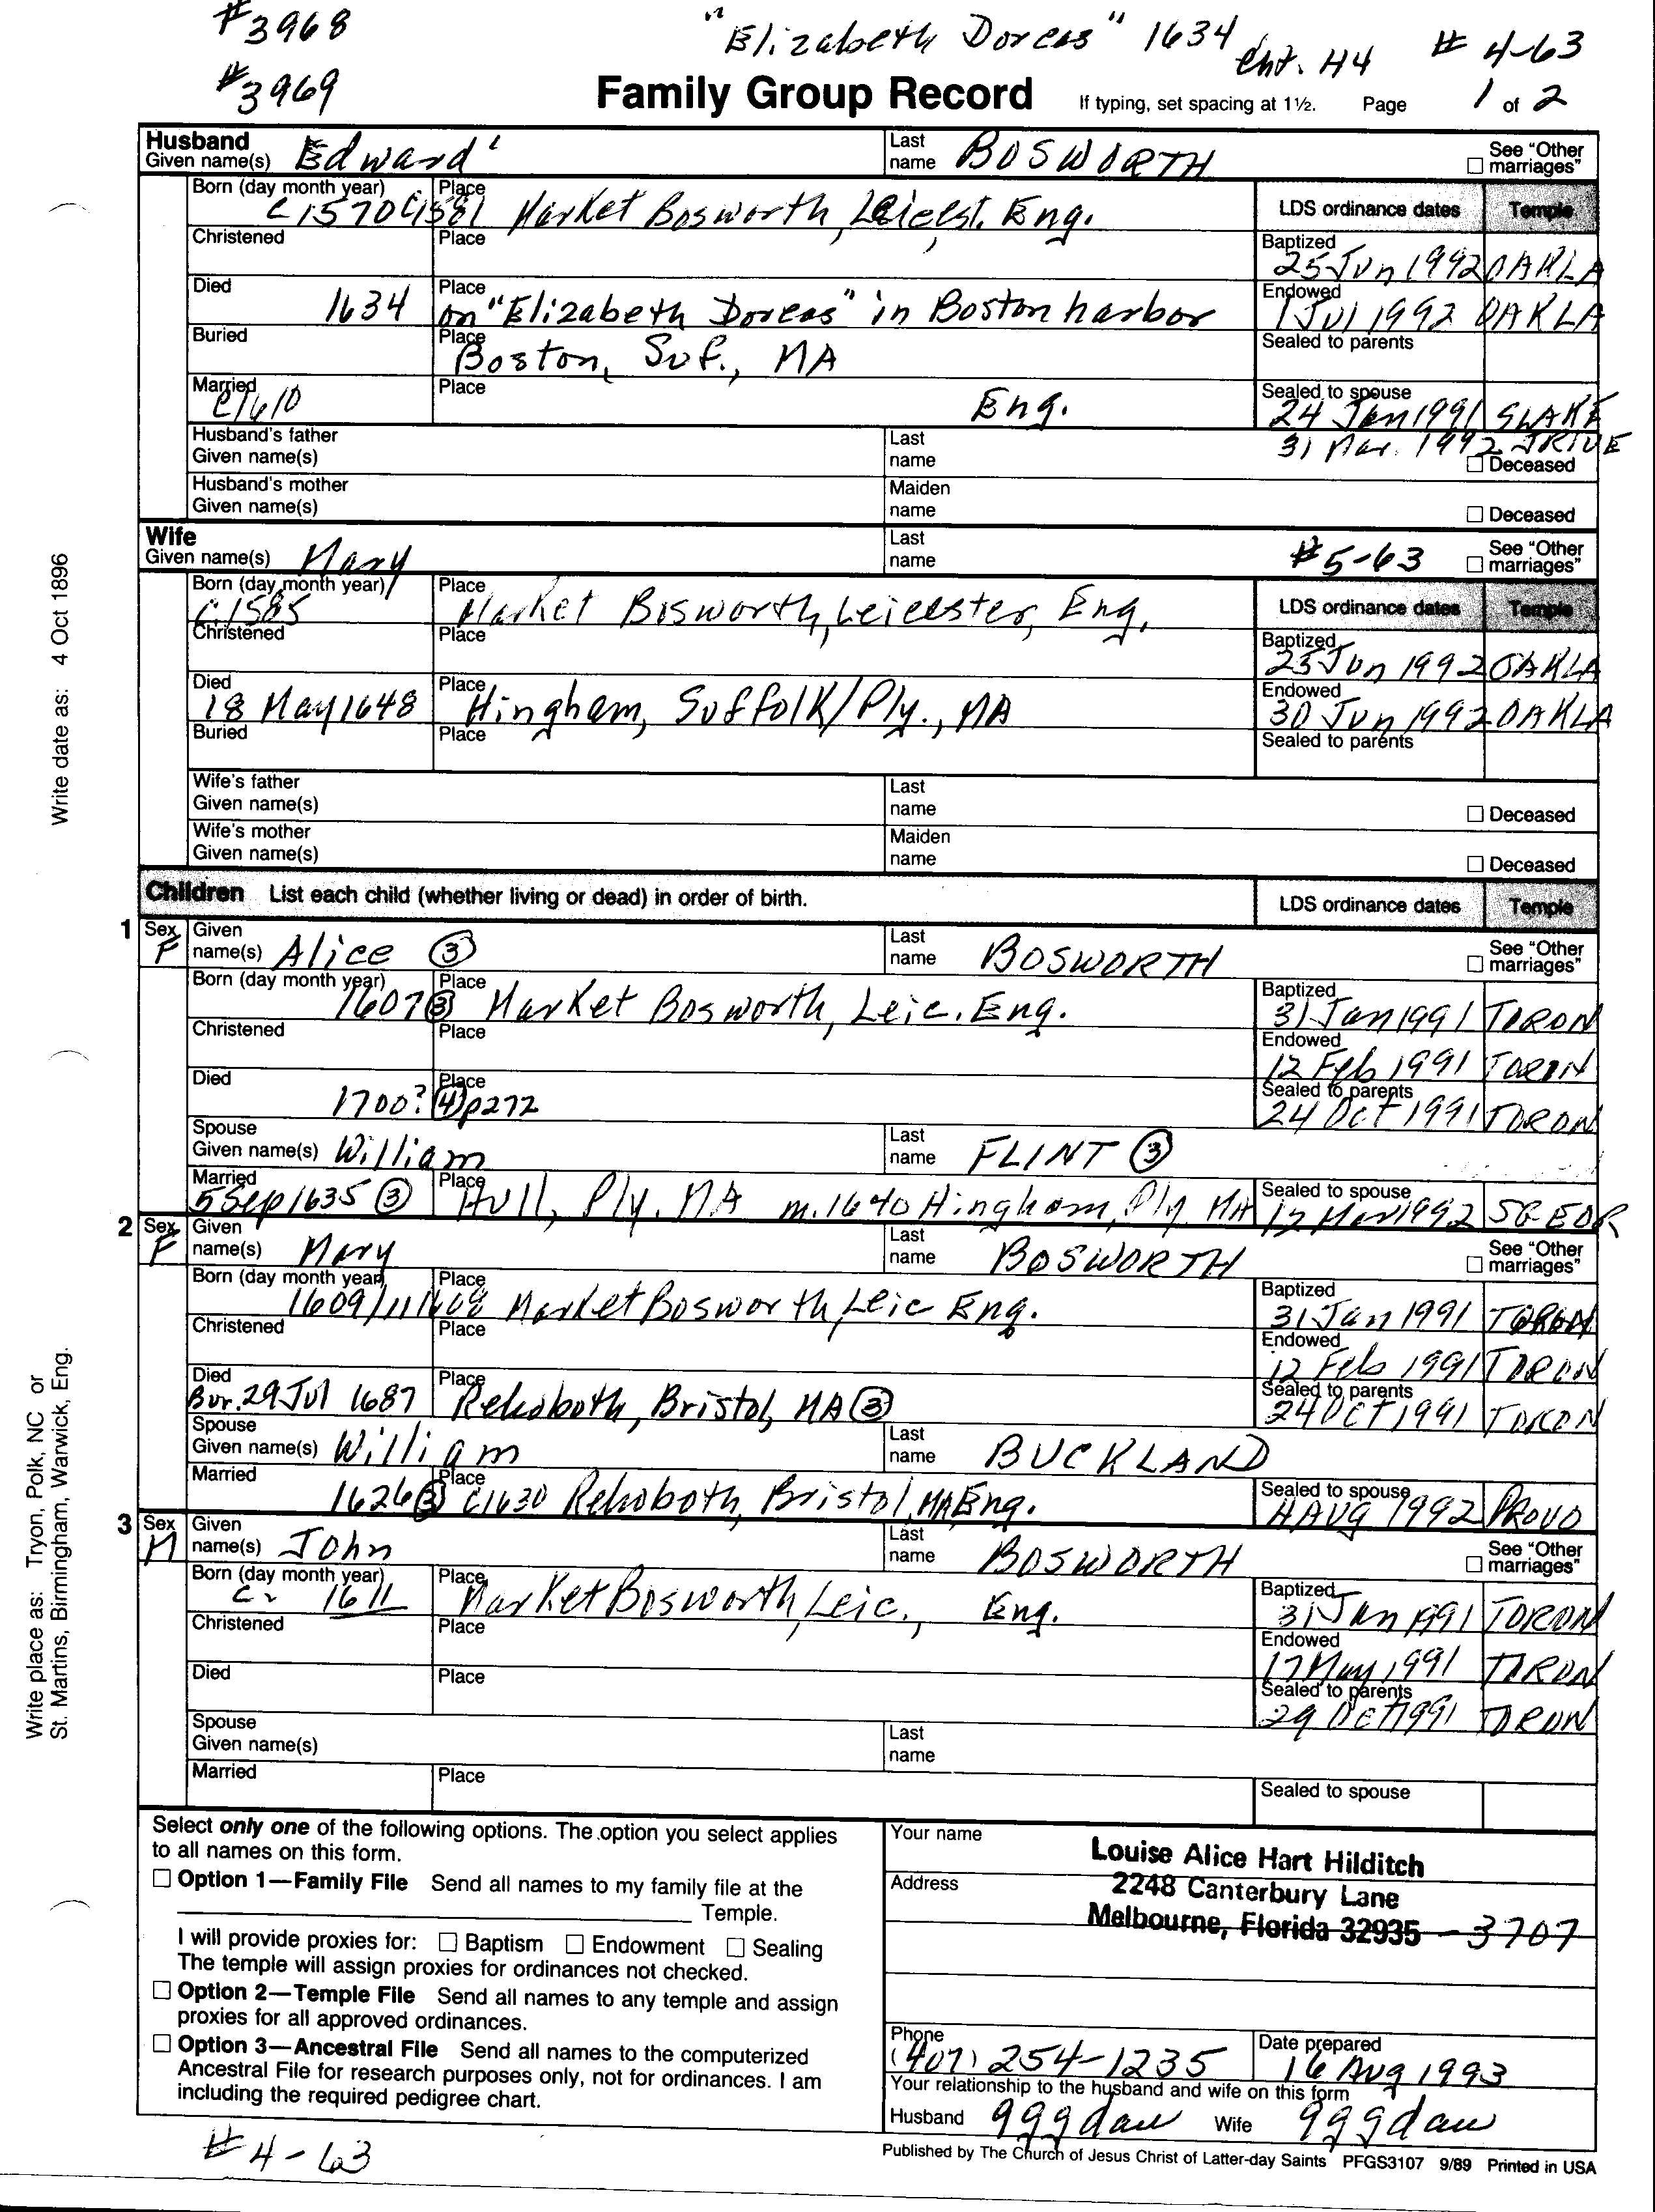 #3968
"Elizabeth Dorcas" 1634
Cht. H4
# 4-63
#3969
Family Group Record
If typing, set spacing at 1½. Page 1 of 2
Husband
Given name(s) Edward
Last name BOSWORTH
☐ See "Other marriages"
Born (day month year) C1570 C1581
Place Market Bosworth, Leicest. Eng.
LDS ordinance dates Temple
Christened
Place
Baptized 25 Jun 1992 OAKLA
Died 1634
Place on "Elizabeth Dorcas" in Boston harbor
Endowed 1 Jul 1992 OAKLA
Buried
Place Boston, Suf., MA
Sealed to parents
Married C1610
Place Eng.
Sealed to spouse 24 Jan 1991 SLAKE
31 Mar. 1992 JRIVE
Husband's father
Given name(s)
Last name
☐ Deceased
Husband's mother
Given name(s)
Maiden name
☐ Deceased
Wife
Given name(s) Mary
Last name
#5-63
☐ See "Other marriages"
Born (day month year) C.1585
Place Market Bosworth, Leicester, Eng.
LDS ordinance dates Temple
Christened
Place
Baptized 25 Jun 1992 OAKLA
Died 18 May 1648
Place Hingham, Suffolk/Ply., MA
Endowed 30 Jun 1992 OAKLA
Buried
Place
Sealed to parents
Wife's father
Given name(s)
Last name
☐ Deceased
Wife's mother
Given name(s)
Maiden name
☐ Deceased
Children List each child (whether living or dead) in order of birth.
LDS ordinance dates Temple
1 Sex F
Given name(s) Alice ③
Last name BOSWORTH
☐ See "Other marriages"
Born (day month year) 1607 ③
Place Market Bosworth, Leic. Eng.
Baptized 31 Jan 1991 TORON
Christened
Place
Endowed 12 Feb 1991 TORON
Died 1700? ④ p272
Place
Sealed to parents 24 Oct 1991 TORON
Spouse
Given name(s) William
Last name FLINT ③
Married 5 Sep 1635 ③
Place Hull, Ply. MA m. 1640 Hingham, Ply. MA
Sealed to spouse 12 Mar 1992 SGEOR
2 Sex F
Given name(s) Mary
Last name BOSWORTH
☐ See "Other marriages"
Born (day month year) 1609/11
Place Market Bosworth, Leic Eng.
Baptized 31 Jan 1991 TORON
Christened
Place
Endowed 12 Feb 1991 TORON
Died Bur. 29 Jul 1687
Place Rehoboth, Bristol, MA ③
Sealed to parents 24 OCT 1991 TORON
Spouse
Given name(s) William
Last name BUCKLAND
Married 1626 ③ C1630
Place Rehoboth, Bristol, MA Eng.
Sealed to spouse AUG 1992 PROVO
3 Sex M
Given name(s) John
Last name BOSWORTH
☐ See "Other marriages"
Born (day month year) C. 1611
Place Market Bosworth, Leic., Eng.
Baptized 31 Jan 1991 TORON
Christened
Place
Endowed 17 May 1991 TORON
Died
Place
Sealed to parents 29 Oct 1991 TORON
Spouse
Given name(s)
Last name
Married
Place
Sealed to spouse
Select only one of the following options. The option you select applies
to all names on this form.
☐ Option 1—Family File Send all names to my family file at the
Temple.
I will provide proxies for: ☐ Baptism ☐ Endowment ☐ Sealing
The temple will assign proxies for ordinances not checked.
☐ Option 2—Temple File Send all names to any temple and assign
proxies for all approved ordinances.
☐ Option 3—Ancestral File Send all names to the computerized
Ancestral File for research purposes only, not for ordinances. I am
including the required pedigree chart.
Your name Louise Alice Hart Hilditch
Address 2248 Canterbury Lane
Melbourne, Florida 32935 -3707
Phone (407) 254-1235
Date prepared 16 Aug 1993
Your relationship to the husband and wife on this form
Husband gggdau Wife gggdau
#4-63
Published by The Church of Jesus Christ of Latter-day Saints PFGS3107 9/89 Printed in USA
Write date as: 4 Oct 1896
Write place as: Tryon, Polk, NC or
St. Martins, Birmingham, Warwick, Eng.